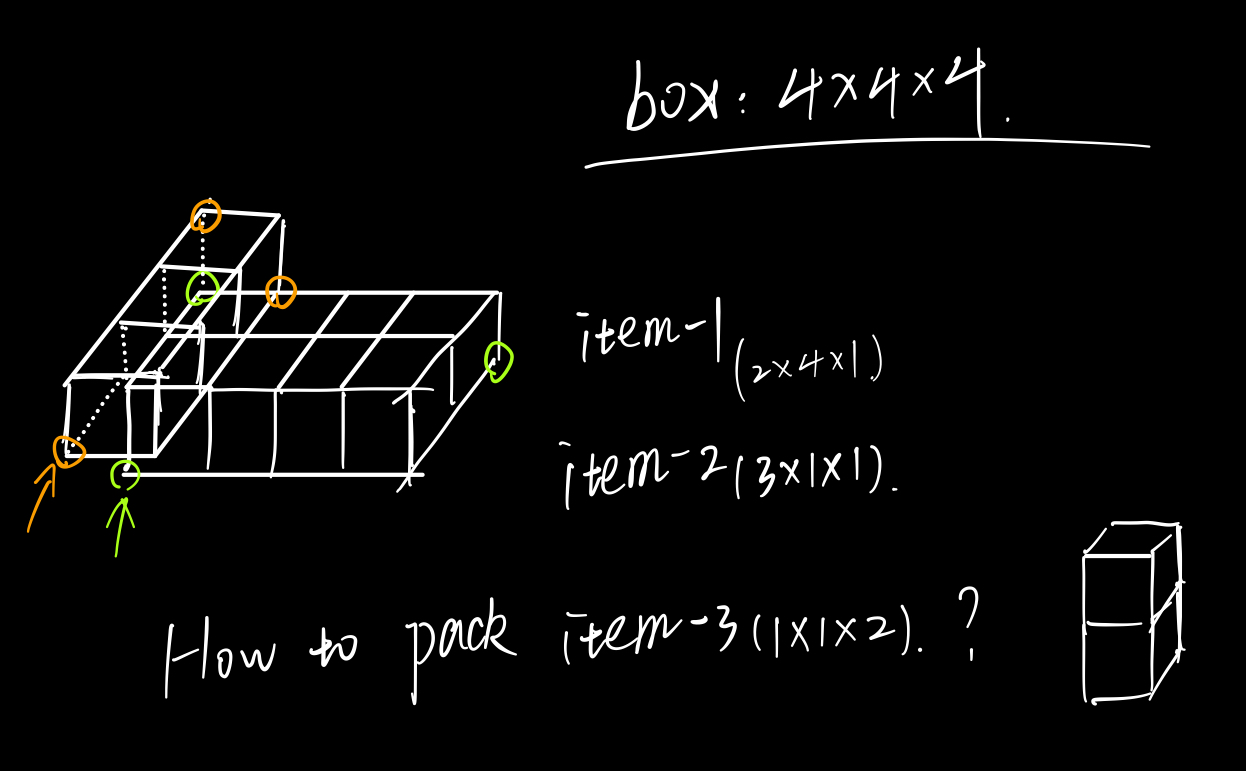 box: 4×4×4.
item-1 (2×4×1)
item-2 (3×1×1).
How to pack item-3 (1×1×2). ?